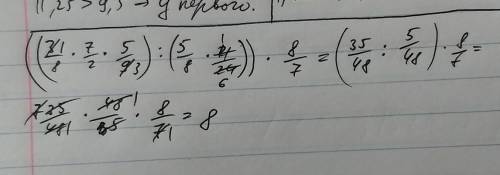 11,25 > 9,3 → у первого.
((21/8 · 7/2 · 5/93) : (5/8 · 4/24)) · 8/7 = (35/48 : 5/48) · 8/7 =
735/481 · 48/5 · 8/71 = 8